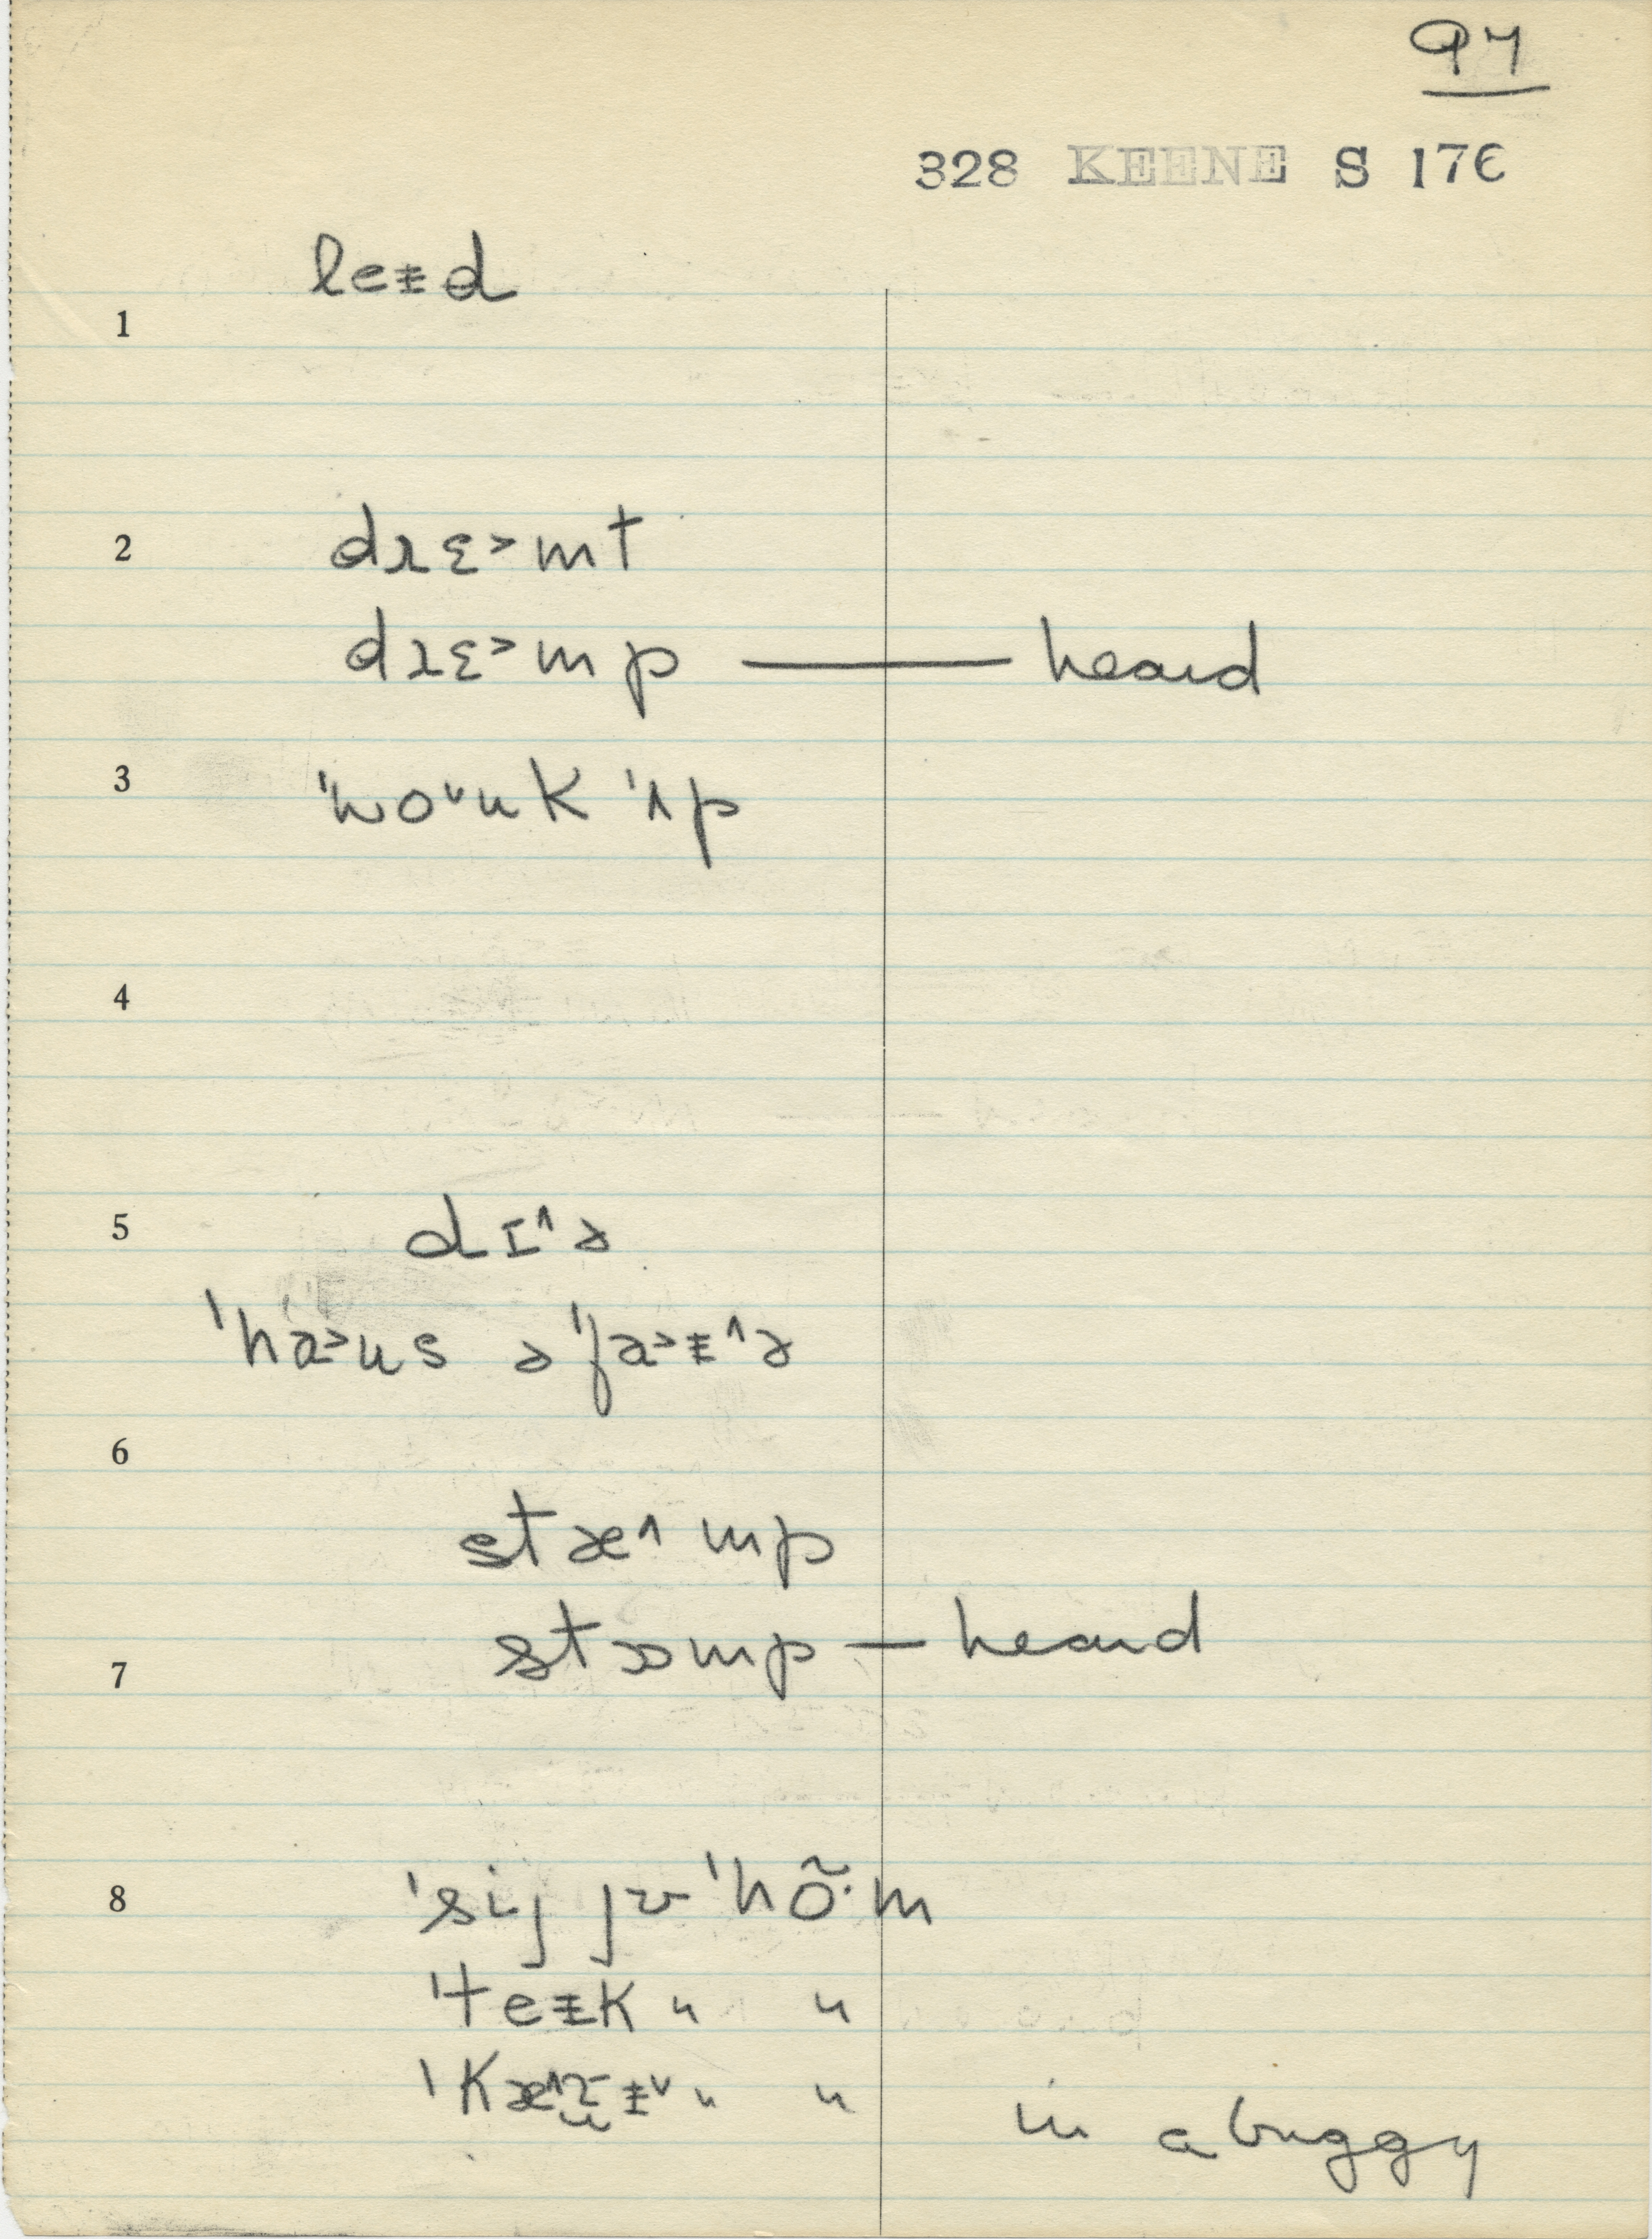 97
328 KEENE S 176
1 leɨd
2 dɹɛ˃mt
dɹɛ˃mp — heard
3 ˈwo˅uk ˈʌp
4
5 dɪ˄ɚ
ˈha˃us əˈfa˃ɨ˄ɚ
6
stæ˄mp
7 stɒmp — heard
8 ˈsij jʊ ˈhõ·m
ˈteɨk " "
ˈkæ˄ɨ˅ " " in a buggy